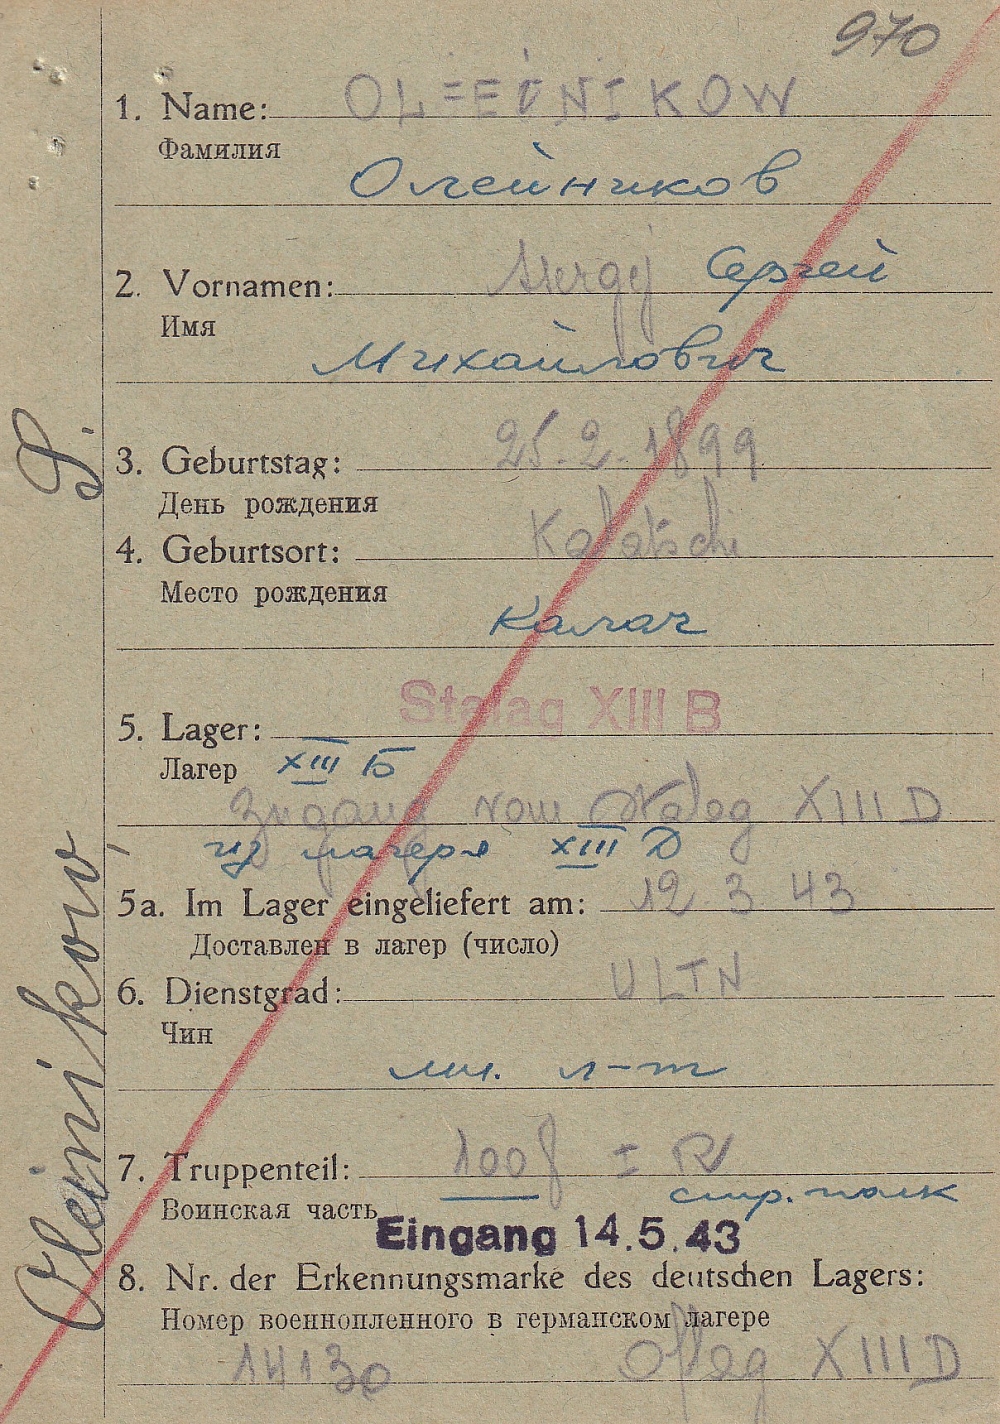 970
1. Name: OLEEINIKOW
Фамилия
Олейников
2. Vornamen: Sergej Сергей
Имя
Михайлович
3. Geburtstag: 25.2.1899
День рождения
4. Geburtsort: Kalatschi
Место рождения
Калач
Stalag XIII B
5. Lager:
Лагер XIII Б
Zugang vom Stalag XIII D
из лагеря XIII Д
5a. Im Lager eingeliefert am: 12 3 43
Доставлен в лагер (число)
6. Dienstgrad: ULTN
Чин
мл. л-т
7. Truppenteil: 1008 I R
Воинская часть стр. полк
Eingang 14.5.43
8. Nr. der Erkennungsmarke des deutschen Lagers:
Номер военнопленного в германском лагере
14130 Oflag XIII D
Oleinikow, S.